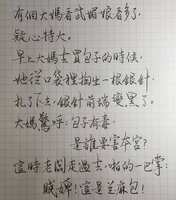 有個大媽看武媚娘看多了,
疑心特大。
早上大媽去買包子的時候,
她從口袋裡掏出一根銀針,
扎了下去,銀針前端變黑了。
大媽驚呼:包子有毒,
是誰要害本宮?
這時老闆走過去,啪的一巴掌:
賤婢!這是芝麻包!